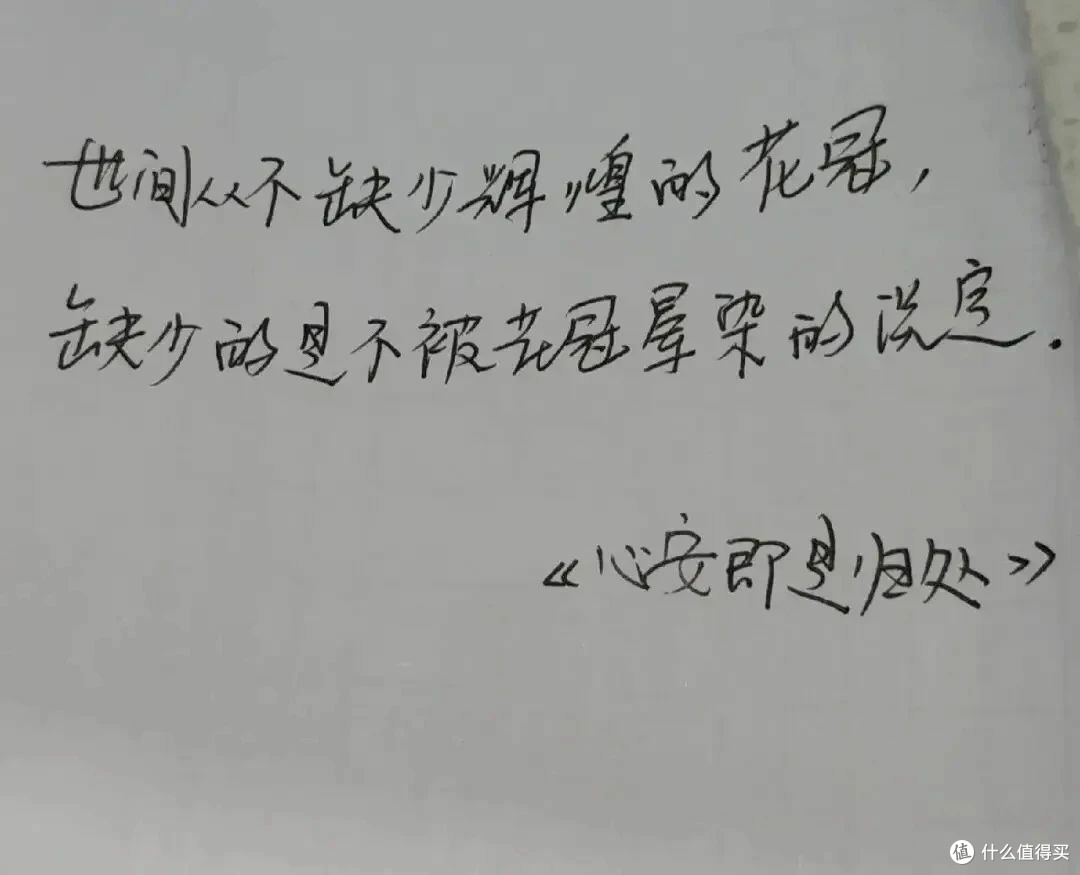 世间从不缺少辉煌的花冠，
缺少的是不被花冠晕染的淡定.
《心安即是归处》
值 什么值得买